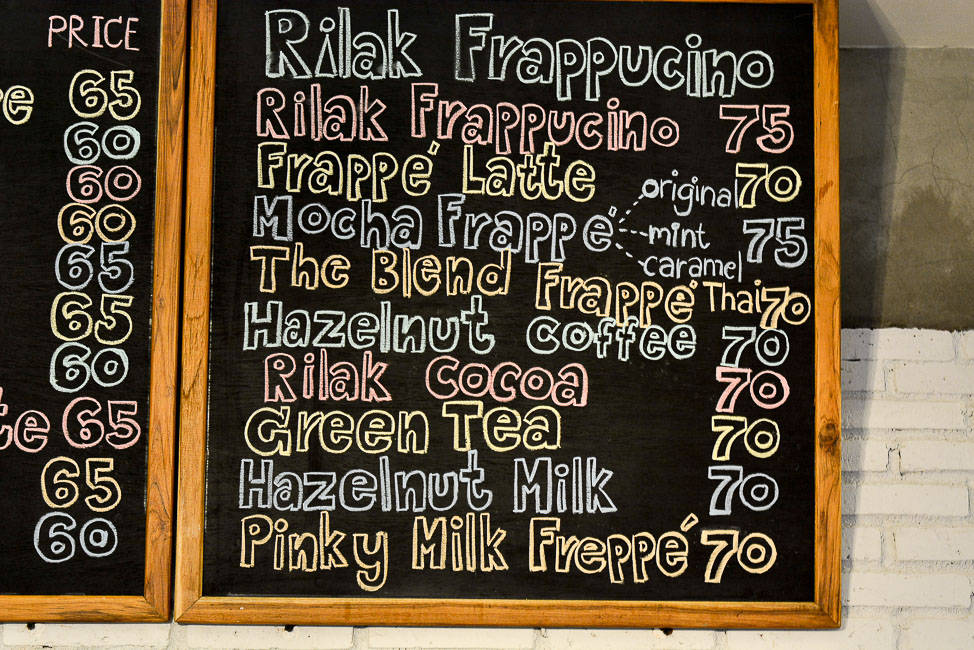 PRICE
65
60
60
60
65
65
60
65
65
60
Rilak Frappucino
Rilak Frappucino 75
Frappé Latte 70
Mocha Frappé original mint caramel 75
The Blend Frappé Thai 70
Hazelnut coffee 70
Rilak Cocoa 70
Green Tea 70
Hazelnut Milk 70
Pinky Milk Freppé 70